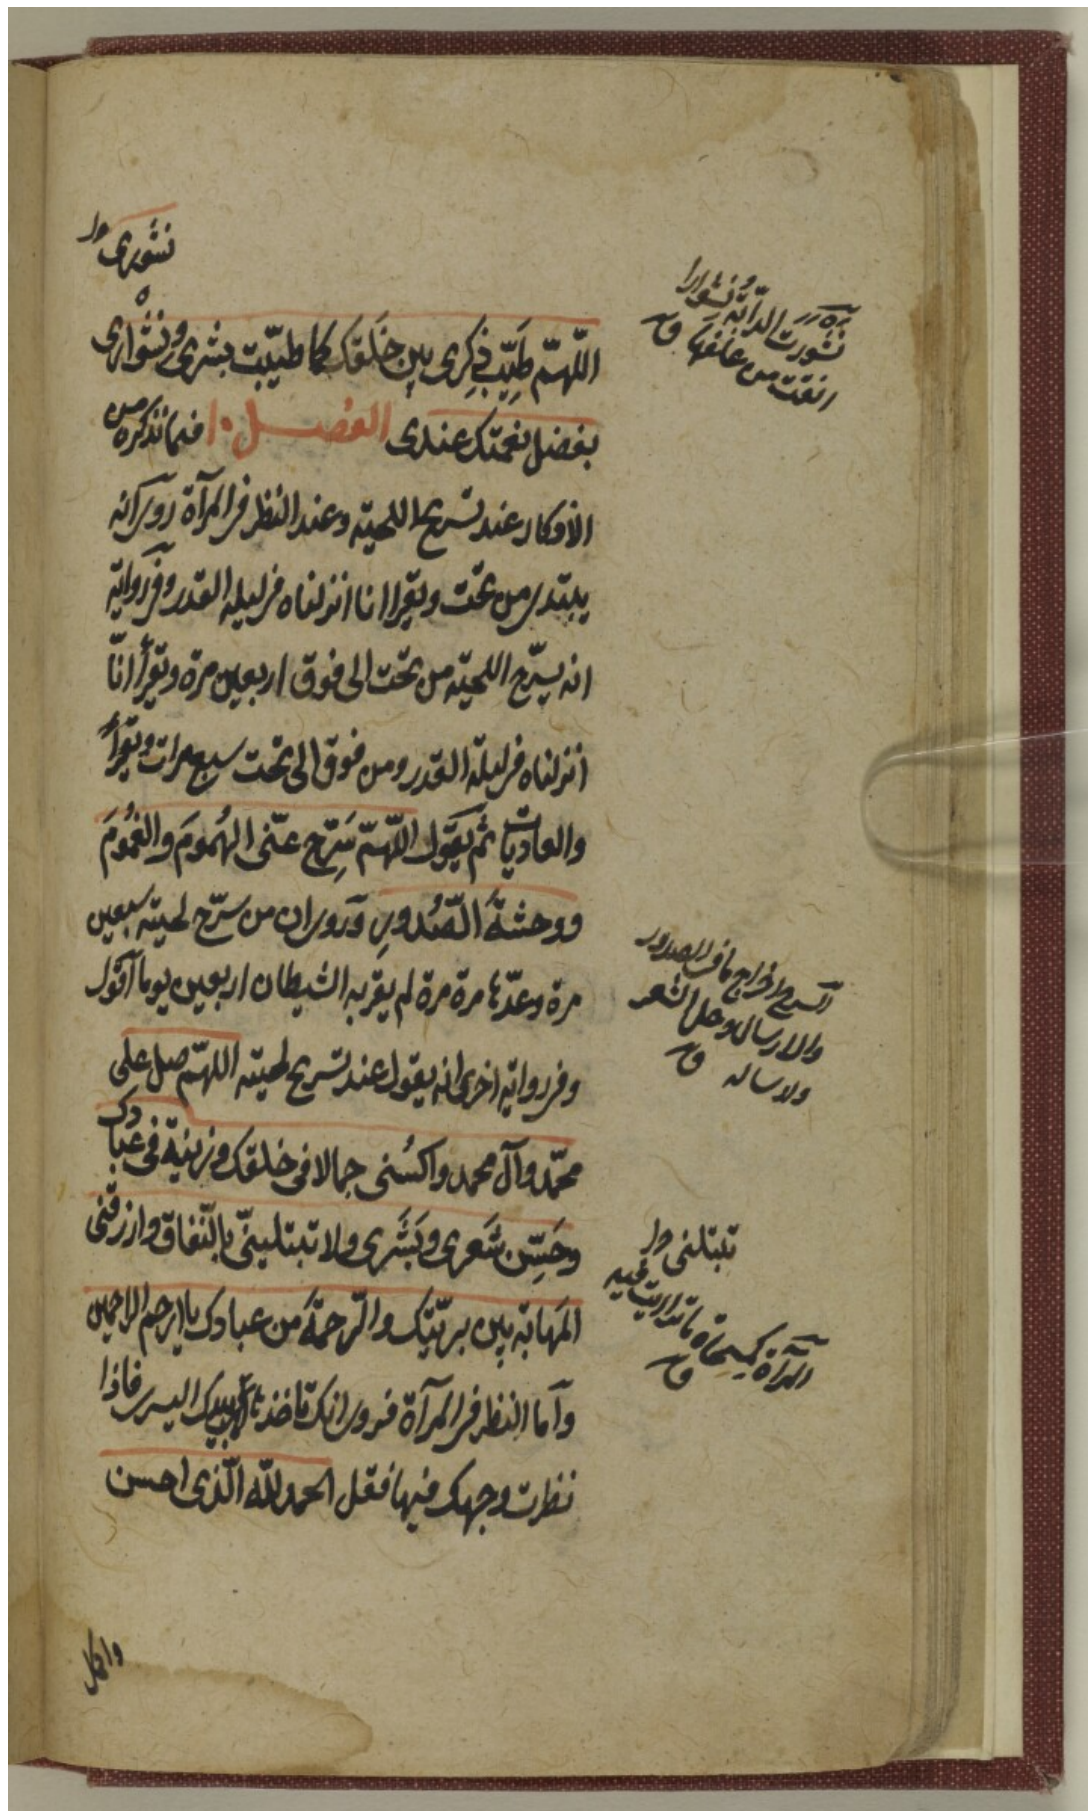 نشوری
اللّهمّ طَیِّب ذِکرِی بین خَلقک کما طیّبت بشری ونشواری
بفضل نعمتک عندی الفصـل ۱۰ فیما نذکره من
الأذکار عند تسریح اللحیة وعند النظر فی المرآة روی انه
یبتدی من تحت ویقرا انا انزلناه فی لیلة القدر وفی روایة
انه یسرّح اللحیة من تحت الی فوق اربعین مرة ویقرأ انّا
انزلناه فی لیلة القدر ومن فوق الی تحت سبع مرات ویقرأ
والعادیات ثم یقول اللّهمّ سَرِّح عنّی الهُمومَ والغمُومَ
ووحشةَ الصّدُورِ وروی ان من سرّح لحیته سبعین
مرة وعدّها مرة مرة لم یقربه الشیطان اربعین یوما اقول
وفی روایة اخری انه یقول عند تسریح لحیته اللهمّ صل علی
محمّد وآل محمد واکسُنی جمالا فی خلقک وزینة فی عبادک
وحَسِّن شَعری وبَشَری ولا تبتلینّی بالنّفاق وارزقنی
المَهابَة بین بریّتک والرّحمَةَ من عبادک یا ارحم الراحمین
وأما النظر فی المرآة فروی انک تاخذها بیدک الیسری فاذا
نظرت وجهک فیها فقل الحمد للّه الّذی احسن
واکمل
نشورت الدابّة نِشوارا
ابقت من علفها ق
السرح اخراج ما فی الصدور
والارسال وحل الشعر
وارساله ق
تبتلنی
المرآة کمسحاة ما تراءیت فیه
ق